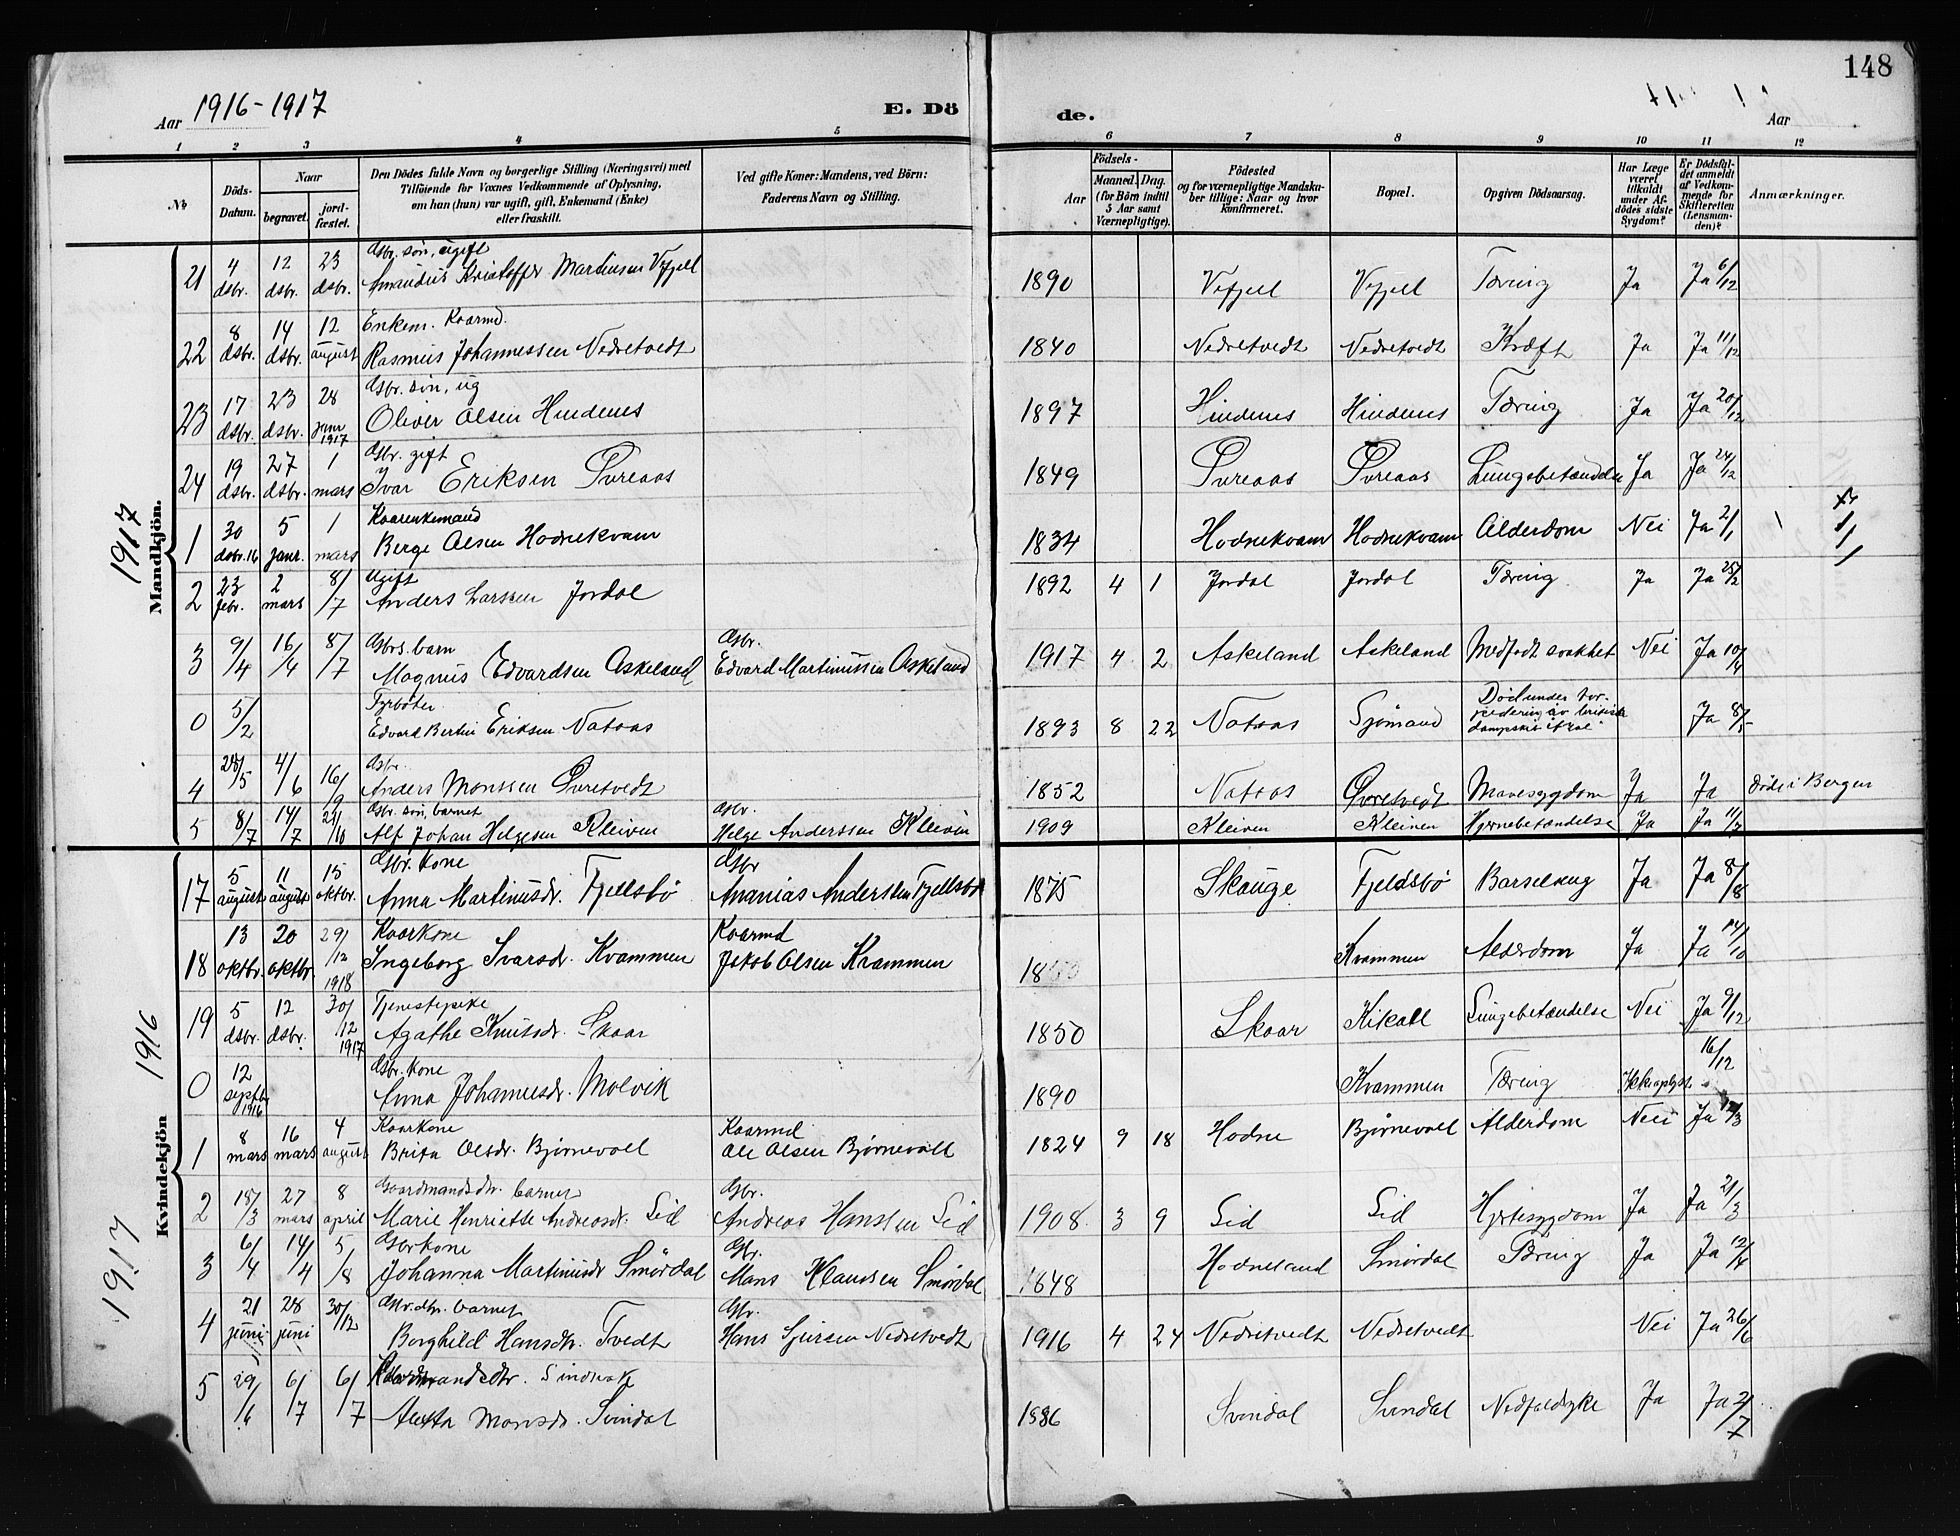 148
Aar 1916-1917
E. Dö
de.
Aar
1 2 3 4 5 6 7 8 9 10 11 12
No
Döds-Datum.
Naar
begravet. jord-fæstet.
Den Dödes fulde Navn og borgerlige Stilling (Næringsvei) med Tilföiende for Voxnes Vedkommende af Oplysning, om han (hun) var ugift, gift, Enkemand (Enke) eller fraskilt.
Ved gifte Koner: Mandens, ved Börn: Faderens Navn og Stilling.
Födsels-
Aar
Maaned. Dag.
(for Börn indtil 5 Aar samt Værnepligtige).
Födested og for værnepligtige Mandskaber tillige: Naar og hvor konfirmeret.
Bopæl.
Opgiven Dödsaarsag.
Har Læge været tilkaldt under Afdödes sidste Sygdom?
Er Dödsfaldet anmeldt af Vedkommende for Skifteretten (Lensmanden)?
Anmærkninger.
Mandkjön.
21 4 dsbr. 12 dsbr. 23 dsbr. Gsbr. søn, ugift
Amandus Kristoffer Martinsen Vefjell 1890 Vefjell Vefjell Tæring Ja Ja 6/12
22 8 dsbr. 14 dsbr. 12 august Enkem. Kaarmd.
Rasmus Johannessen Nedretvedt 1840 Nedretvedt Nedretvedt Kræft Ja Ja 11/12
23 17 dsbr. 23 dsbr. 28 1917 Gsbr. søn, ug
Oliver Olsen Hindenes 1897 Hindenes Hindenes Tæring Ja Ja 20/12
24 19 dsbr. 27 dsbr. 1 mars Gsbr. gift
Ivar Eriksen Øvreaas 1849 Øvreaas Øvreaas Lungebetændelse Ja Ja 24/12
1917
1 30 dsbr. 16 5 janr. 1 mars Kaarenkemand
Berge Olsen Hodnekvam 1834 Hodnekvam Hodnekvam Alderdom Nei Ja 2/1
2 23 febr. 2 mars 8/7 Ugift
Anders Larssen Jordal 1892 4 1 Jordal Jordal Tæring Ja Ja 25/2
3 9/4 16/4 8/7 Gsbrs. barn Gsbr.
Magnus Edvardsen Askeland Edvard Martinussen Askeland 1917 4 2 Askeland Askeland Medfødt svakhet Nei Ja 10/4
0 5/2 Fyrbøter
Edvard Bertin Eriksen Nataas 1893 8 22 Nataas Sjømand Død under torpedering av britisk dampskib Ja 8/5
4 28/5 4/6 16/9 Gsbr.
Anders Monssen Øvretvedt 1852 Nataas Øvretvedt Mavesygdom Ja Ja Døde i Bergen
5 8/7 14/7 21/10 Gsbr. søn, barnet Gsbr.
Alf Johan Helgesen Kleiven Helge Anderssen Kleiven 1909 Kleiven Kleiven Hjernebetændelse Ja Ja 11/7
Kvindekjön
1916
17 5 august 11 august 15 oktbr. Gsbr. kone Gsbr
Anna Martinusdr. Fjellsbø Ananias Anderssen Fjellsbø 1875 Skauge Fjeldsbø Barselseng Ja Ja 8/8
18 13 oktbr. 20 oktbr. 29/12 1918 Kaarkone Kaarmd
Ingeborg Ivarsdr. Kvammen Jakob Olsen Kvammen Kvammen Alderdom Ja Ja 14/10
19 5 dsbr. 12 dsbr. 30/12 1917 Tjenestepike
Agathe Knutsdr. Skaar 1850 Skaar Kikall Lungebetændelse Nei Ja 9/12
0 12 septbr 1916 Gsbr. kone
Anna Johannesdr. Molvik 1890 Kvammen Tæring Ikke oplyst 16/12
1917
1 8 mars 16 mars 4 august Kaarkone Kaarmd
Brita Olsdr. Bjørnevoll Ole Olsen Bjørnevoll 1824 9 18 Hodne Bjørnevoll Alderdom Nei Ja 12/3
2 18/3 27 mars 8 april Gaardmandsdtr. barnet Gsbr.
Marie Henriette Andreasdr. Eid Andreas Hanssen Eid 1908 3 9 Eid Eid Hjertesygdom Ja Ja 21/3
3 6/4 14/4 5/8 Gsbr kone Gbr.
Johanna Martinusdr Smørdal Mans Klaussen Smørdal 1848 Hodneland Smørdal Tæring Ja Ja 12/4
4 21 juni 28 juni 30/12 Gsbr. dtr. barnet Gsbr.
Borghild Hansdtr. Tvedt Hans Sjursen Nedretvedt 1916 4 24 Nedretvedt Nedretvedt Nei Ja 26/6
5 29/6 6/7 6/7 Sindssyk
Monsdr. Svindal 1886 Svindal Svindal Nedfaldsyke Ja Ja 2/7